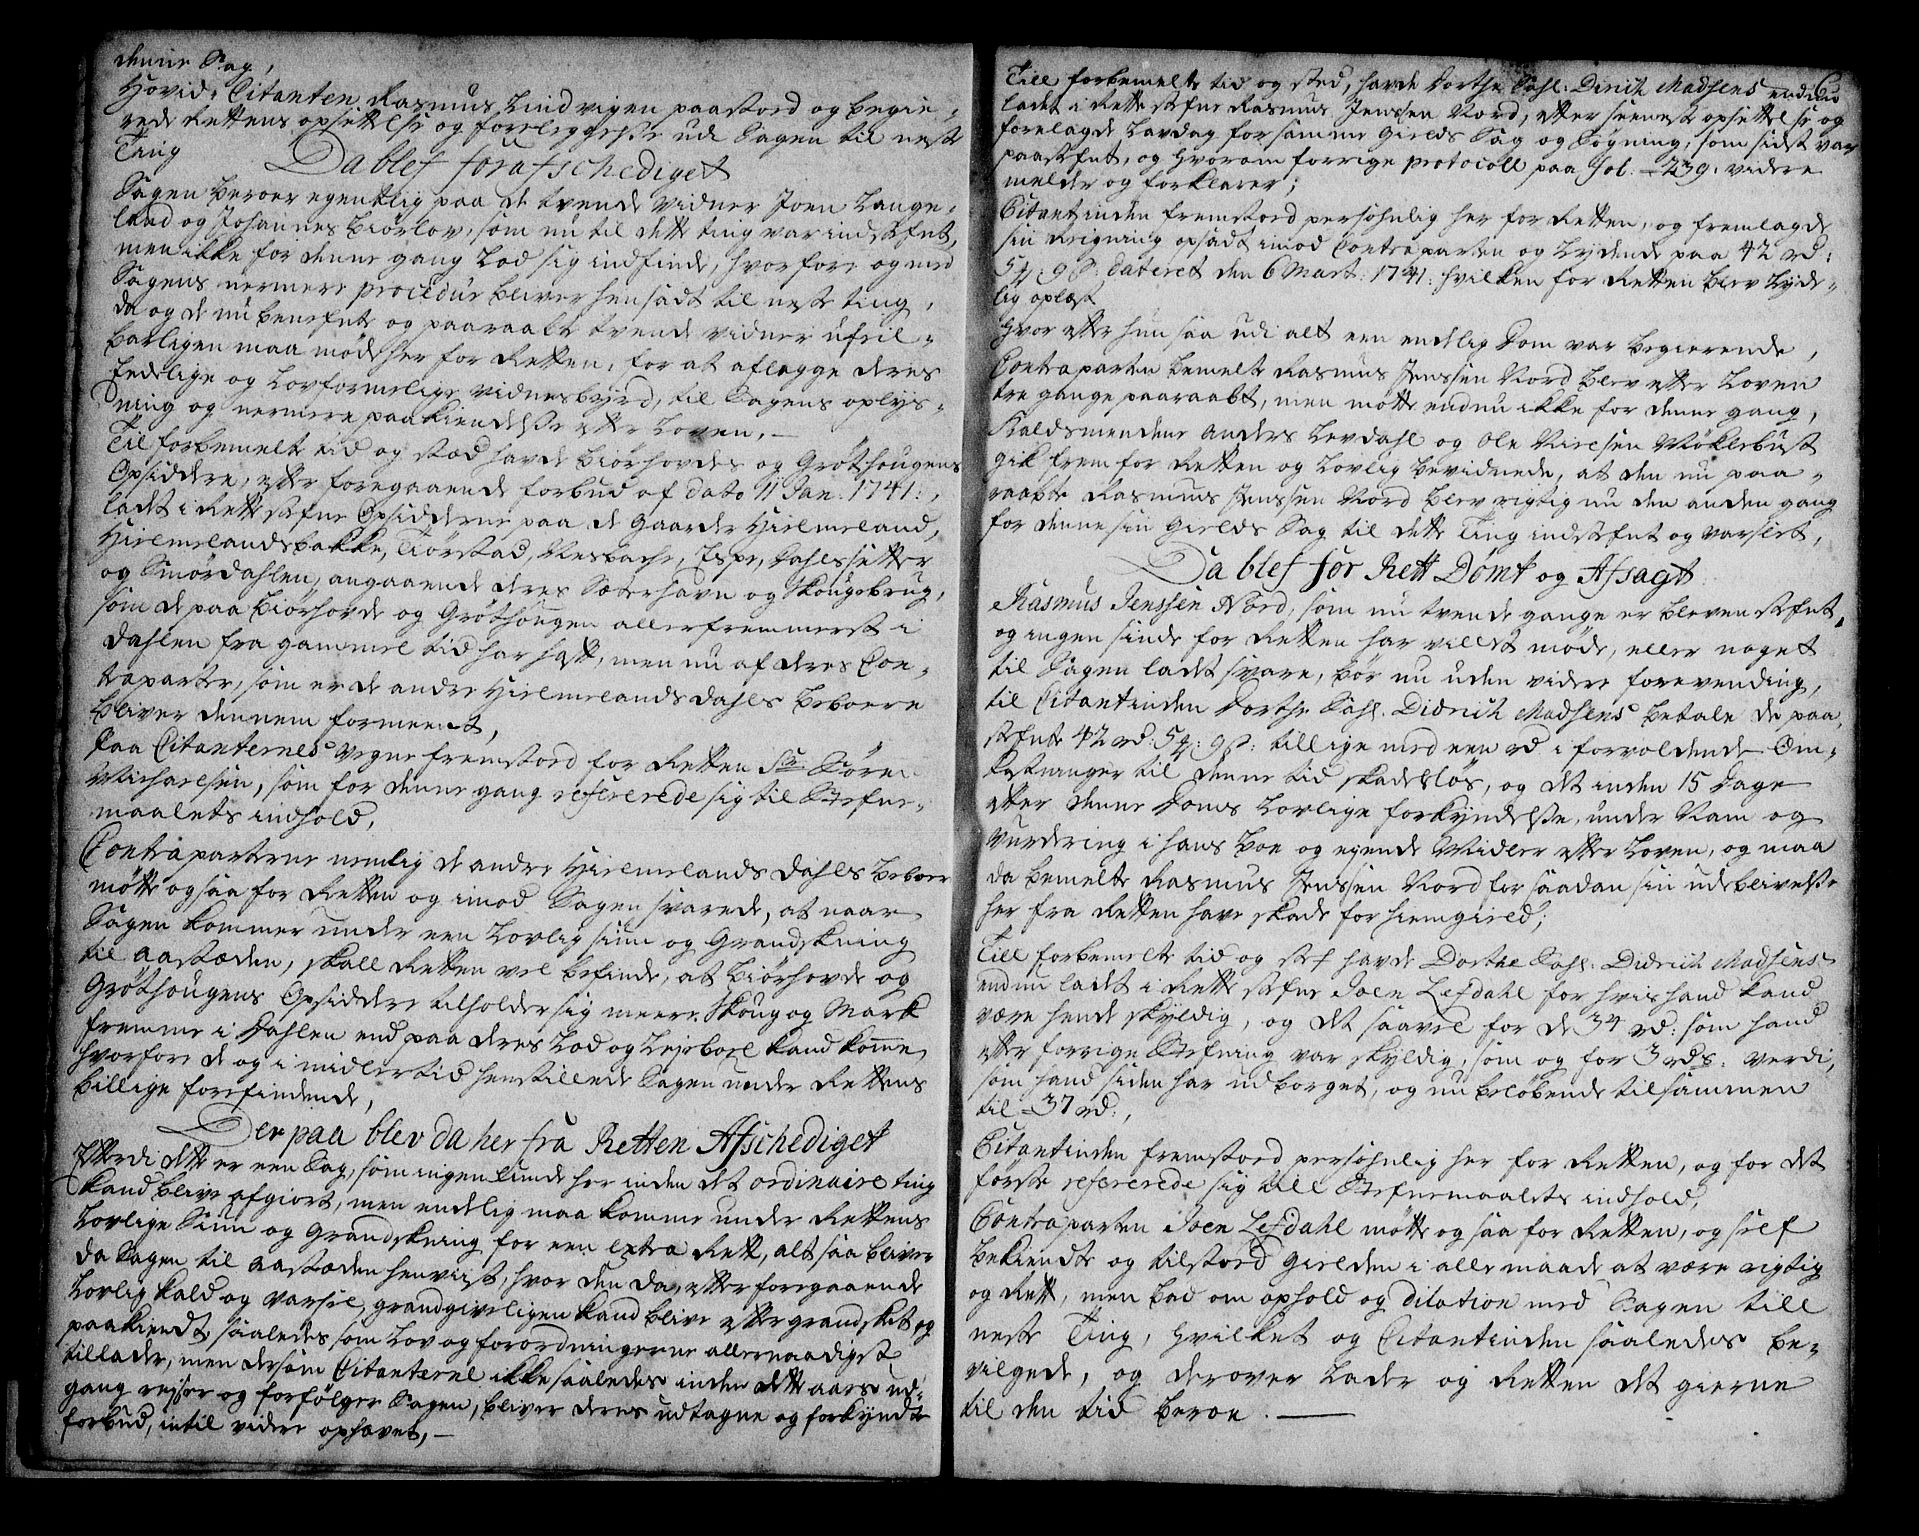 denne Sag,
Hovid: Citanten Rasmus Lindvigen paastod og begie-
rede Rettens opsettelse og foreleggelse udi Sagen til neste
Ting
Da blef forafschediget
Sagen beroer egentlig paa de tvende vidner Joen Lange-
land og Johannes Biørlov, som nu til dette ting var indstefnt,
men ikke for denne gang lod sig indfinde, hvorfore og med
Sagens nermere procedur bliver hensadt til neste ting,
da og de nu benefnte og paaraabte tvende vidner ufeil-
barligen maa møde her for Retten, for at aflegge deres
Eedelige og Lovformelige vidnesbyrd, til Sagens oplys-
ning og nermere paakiendelse efter Loven, —
Til forbemelte tid og sted havde Biørhovdes og Grøthougens
Opsiddere, efter foregaaende forbud af dato 11 Jan: 1741:,
ladet i Rette stefne Opsidderne paa de gaarde Hielmeland,
Hielmelandsbakke, Tiørstad, Resbache, Espe, Dahlssetter
og Smørdahlen, angaaende deres Sæterhavn og Skougebrug,
som de paa Biørhovde og Grøthougen allerfremmerst i
Dahlen fra gammel tid har hafft, men nu af deres Con-
traparter, som er de andre Hielmelandsdahls beboere
bliver dennem formeent,
Paa Citanternes vegne fremstod for Retten Sr Søren
Michaelsen, som for denne gang refererede sig til Stefne-
maalets indhold,
Contraparterne nemlig de andre Hielmelands dahls beboere
møtte og saa for Retten og imod Sagen svarede, at naar
Sagen kommer under een Lovlig siun og Grandskning
til aastæden, skall Retten vel befinde, at Biørhovde og
Grøthougens Opsiddere tilholder sig meere Skoug og Mark
fremme i Dahlen end paa deres Lod og Lejebole kand komme,
hvorfore de og i midlertid henstillede Sagen under Rettens
billige forefindende,
Der paa blev da her fra Retten Afschediget
Efterdi dette er een Sag, som ingenlunde her inden det ordinaire ting
kand blive afgiort, men endelig maa komme under Rettens
Lovlige Siun og Grandskning for een extra Rett, alt saa bliver
da Sagen til aastæden henviist, hvor den da, efter foregaaende
Lovlig kald og varsel, grandgiveligen kand blive eftergrandsket og
paakiendt, saaledes som Lov og forordningerne allernaadigst
tillader, men dersom Citanterne ikke saaledes inden dette aars ud-
gang rejser og forfølger Sagen, bliver deres udtagne og forkyndte
forbud, intil videre ophævet, —
Till forbemelte tid og sted, havde Dorthe Sahl: Dirich Madsens endnu
ladet i Rette stefne Rasmus Jenssen Nord, efter seeneste opsettelse og
forelagde Lavdag for samme Gields Sag og Søgning, som sidst var
paastefnt, og hvorom forrige protocoll paa fol: 239. videre
melder og forklarer;
Citantinden fremstod persohnlig her for Retten, og fremlagde
sin Reigning opsadt imod Contraparten og Lydende paa 42 rd:
5 : 9 : dateret den 6 Mart: 1741: hvilken for Retten blev lyde-
lig oplæst
Hvor efter hun saa udi alt een endelig Dom var begierende,
Contraparten bemelte Rasmus Jenssen Nord blev efter Loven
tre gange paaraabt, men møtte endnu ikke for denne gang,
Kaldsmendene Anders Levdahl og Ole Nielsen Møklebust
gik frem for Retten og Lovlig bevidnede, at den nu paa-
raabte Rasmus Jenssen Nord blev rigtig nu den anden gang
for denne sin Gields Sag til dette Ting indstefnt og varslet,
Da blef for Rett Dømt og Afsagt
Rasmus Jenssen Nord, som nu tvende gange er bleven stefnt,
og ingen sinde for Retten har villet møde, eller noget
til Sagen ladet svare, bør nu uden videre forevending,
til Citantinden Dorthe Sahl. Didrich Madsens betale de paa-
stefnte 42 rd: 5 : 9 : tillige med een rd i forvoldende Om-
kostninger til denne tid skadesløs, og det inden 15 Dage
efter denne Doms Lovlige forkyndelse, under Nam og
vurdering i hans boe og eyende Midler efter Loven, og maa
da bemelte Rasmus Jenssen Nord for saadan sin udeblivelse
her fra Retten have skade for hiemgield;
Till forbemelte tid og sted havde Dorthe Sahl. Didrich Madsens
endnu ladet i Rette stefne Joen Lefdahl for hvis hand kand
være hende skyldig, og det saavel for de 34 rd: som hand
efter forrige Stefning var skyldig, som og for 3 rds: verdi,
som hand siden har udborget, og nu beløbende tilsammen
til 37 rd:,
Citantinden fremstod persohnlig her for Retten, og for det
første refererede sig till Stefnemaalets indhold,
Contraparten Joen Lefdahl møtte og saa for Retten, og self
bekiendte og tilstod Gielden i alle maade at være rigtig
og Rett, men bad om ophold og dilation med Sagen till
neste Ting, hvilket og Citantinden saaledes be-
vilgede, og derover lader og Retten det gierne
til den tid beroe. —